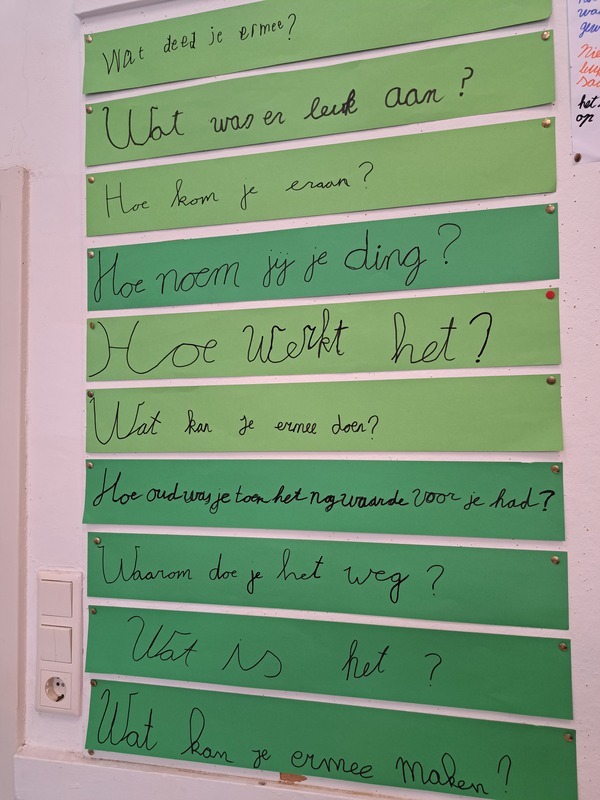 Wat deed je ermee?
Wat was er leuk aan?
Hoe kom je eraan?
Hoe noem jij je ding?
Hoe werkt het?
Wat kan je ermee doen?
Hoe oud was je toen het nog waarde voor je had?
Waarom doe je het weg?
Wat is het?
Wat kan je ermee maken?
het
op